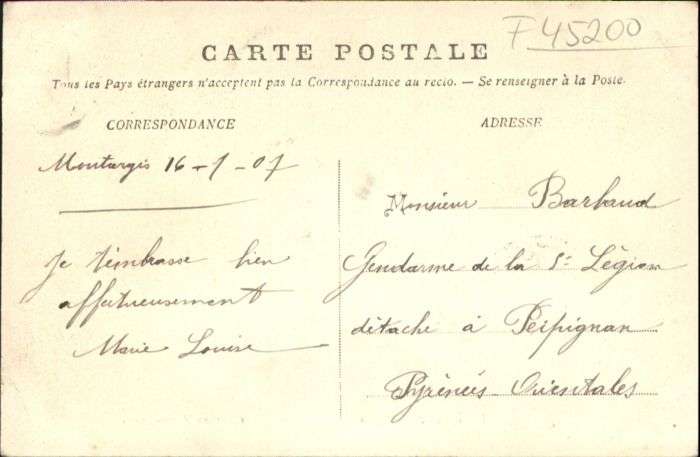 F 45200
CARTE POSTALE
Tous les Pays étrangers n'acceptent pas la Correspondance au recto. — Se renseigner à la Poste.
CORRESPONDANCE
Montargis 16-1-07
Je t'embrasse bien
affectueusement
Marie Louise
ADRESSE
Monsieur Barbaud
Gendarme de la 5e Légion
détaché à Perpignan
Pyrénées-Orientales